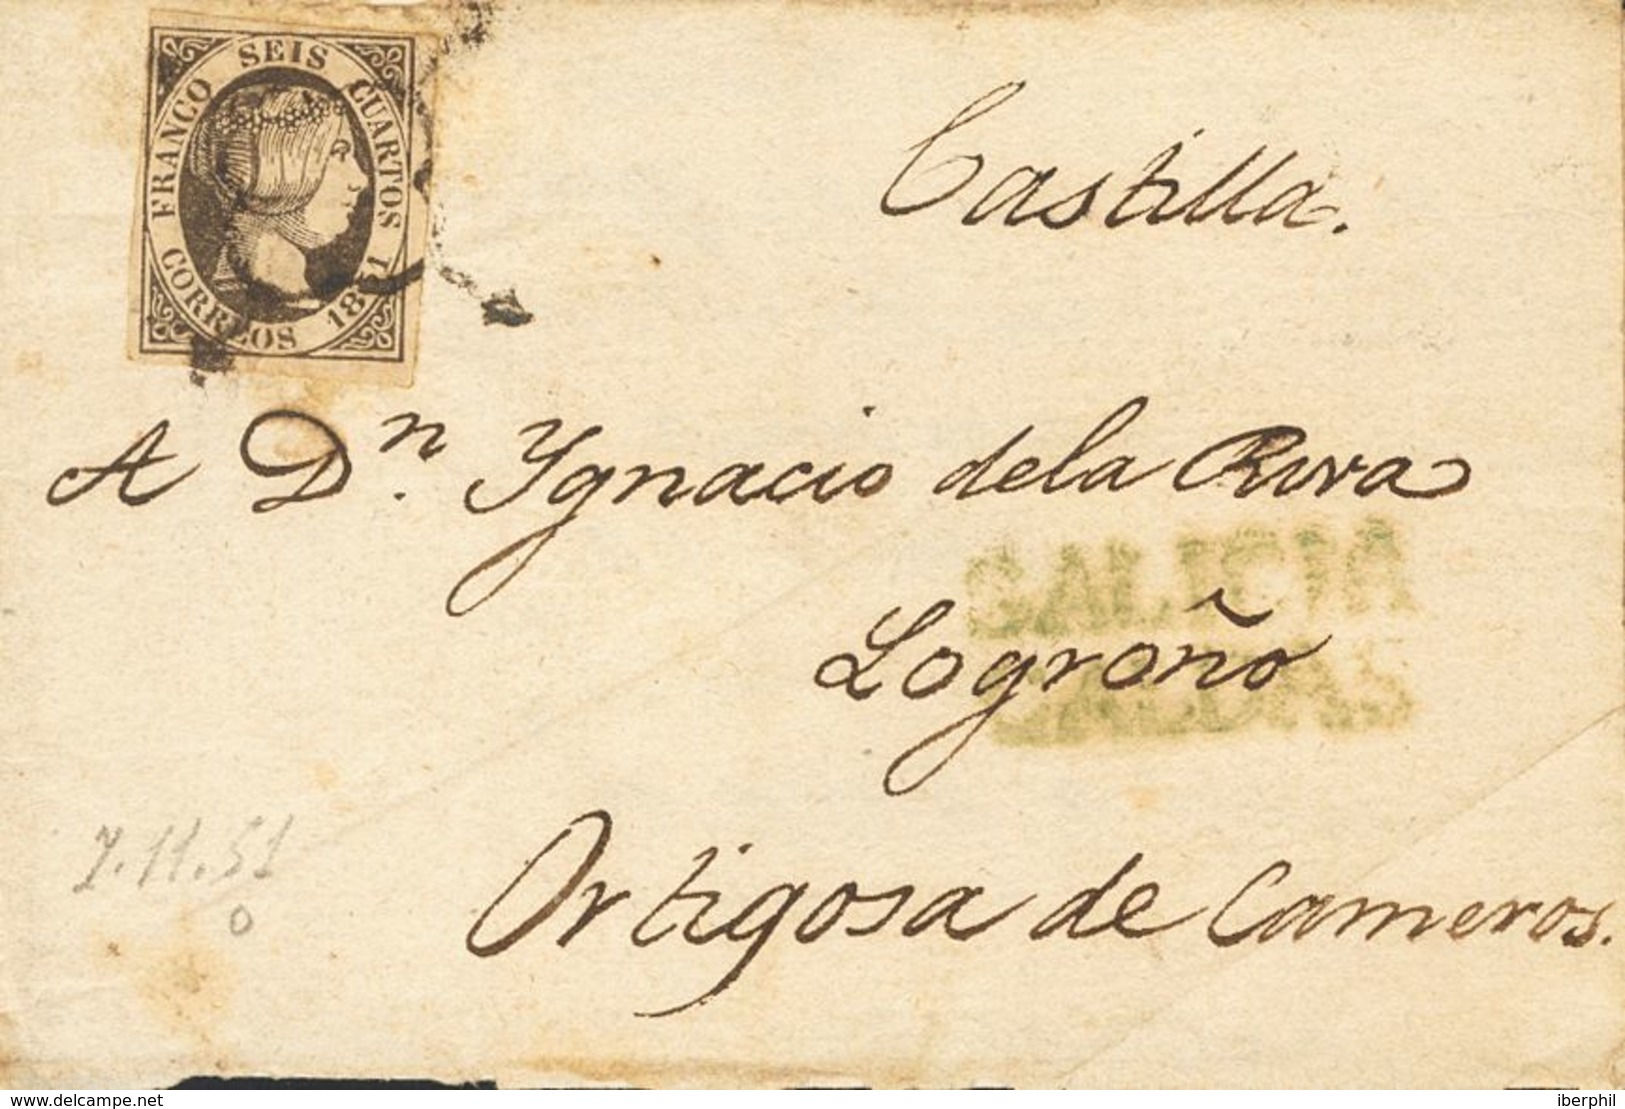 FRANCO SEIS CUARTOS
CORREOS 1851
Castilla.
A Dn. Ygnacio dela Riva
Logroño
Ortigosa de Cameros.
7.11.51
www.delcampe.net
iberphil